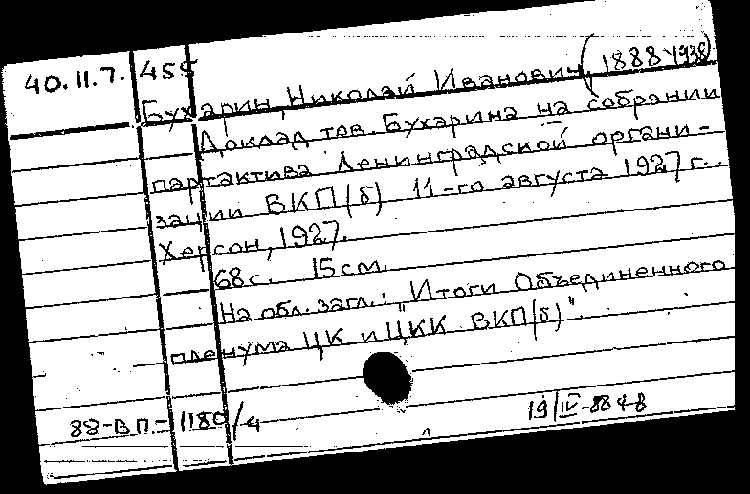 40.11.7. 455
Бухарин, Николай Иванович (1888-1938)
Доклад тов. Бухарина на собрании
партактива Ленинградской органи-
зации ВКП(б) 11-го августа 1927 г.
Херсон, 1927.
68 с. 15 см.
На обл. загл.: "Итоги Объединенного
пленума ЦК и ЦКК ВКП(б)".
88-ВП-1180/4
19/IV-88